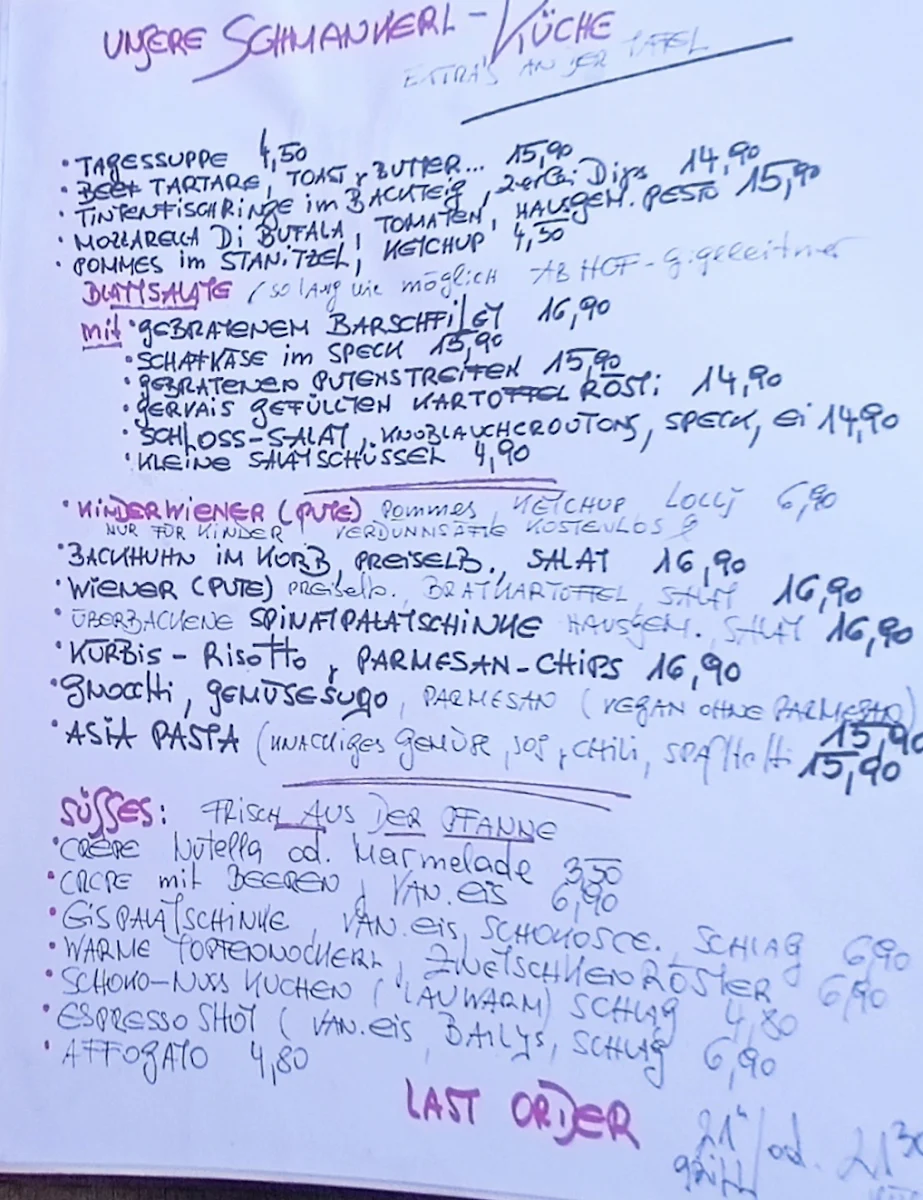 UNSERE SCHMANKERL-KÜCHE
EXTRA'S AN DER TAFEL
• TAGESSUPPE 4,50
• BEEF TARTARE, TOAST, BUTTER... 15,90
• TINTENFISCHRINGE im BACKTEIG, 2-erlei Dips 14,90
• MOZZARELLA Di BUFALA, TOMATEN, HAUSGEM. PESTO 15,90
• POMMES im STANITZEL, KETCHUP 4,50
BLATTSALATE / so lang wie möglich AB HOF-G.geleitner
mit • GEBRATENEM BARSCHFILET 16,90
• SCHAFKÄSE im SPECK 15,90
• GEBRATENEN PUTENSTREIFEN 15,90
• GERVAIS GEFÜLLTEN KARTOFFEL RÖSTi 14,90
• SCHLOSS-SALAT, KNOBLAUCHCROUTONS, SPECK, Ei 14,90
• KLEINE SALATSCHÜSSEL 4,90
• KINDERWIENER (PUTE) Pommes, KETCHUP LOLLY 6,90
NUR FÜR KINDER! VERDÜNNSÄFTE KOSTENLOS
• BACKHUHN IM KORB, PREISELB., SALAT 16,90
• WIENER (PUTE) PREISELB. BRATKARTOFFEL, SALAT 16,90
• ÜBERBACKENE SPINATPALATSCHINKE HAUSGEM. SALAT 16,90
• KÜRBIS-RISOTTO, PARMESAN-CHIPS 16,90
• GNOCCHI, GEMÜSESUGO, PARMESAN (VEGAN OHNE PARMESAN) 15,90
• ASIA PASTA (KNACKIGES GEMÜSE, SOJ, CHILI, SPAGHETTI 15,90
SÜSSES: FRISCH AUS DER PFANNE
• CRÊPE Nutella od. Marmelade 3,50
• CREPE mit BEEREN, VAN.eis 6,90
• EISPALATSCHINKE, VAN.eis, SCHOKOSCE., SCHLAG 6,90
• WARME TOPFENNOCKERL, ZWETSCHKENRÖSTER 6,90
• SCHOKO-NUSS KUCHEN (LAUWARM) SCHLAG 4,80
• ESPRESSO SHOT (VAN.eis, BAILYS, SCHLAG 6,90
• AFFOGATO 4,80
LAST ORDER
21h / od. 21 30